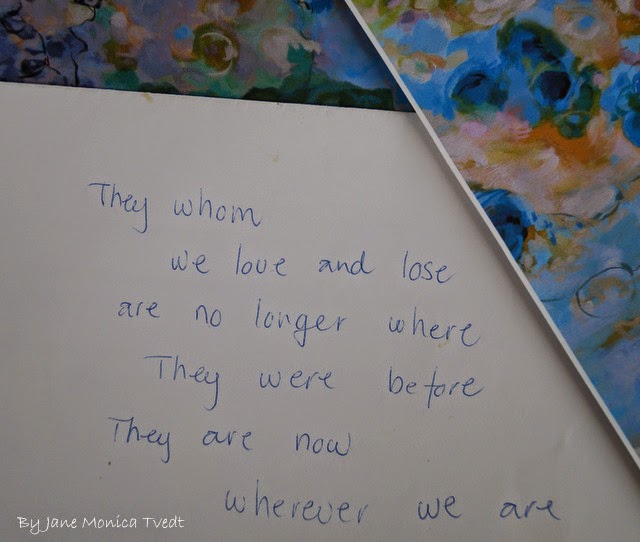 They whom
we love and lose
are no longer where
They were before
They are now
wherever we are
By Jane Monica Tvedt